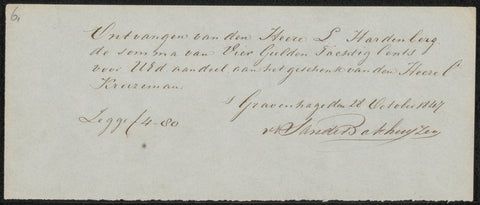 6.
Ontvangen van den Heere L Hardenberg
de somma van Vier Gulden Tachtig Cents
voor UEd aandeel aan het geschenk van den Heere C
Kruzeman.
s Gravenhage den 28 October 1847
Legge f 4-80 vd Sande Bakhuyzen